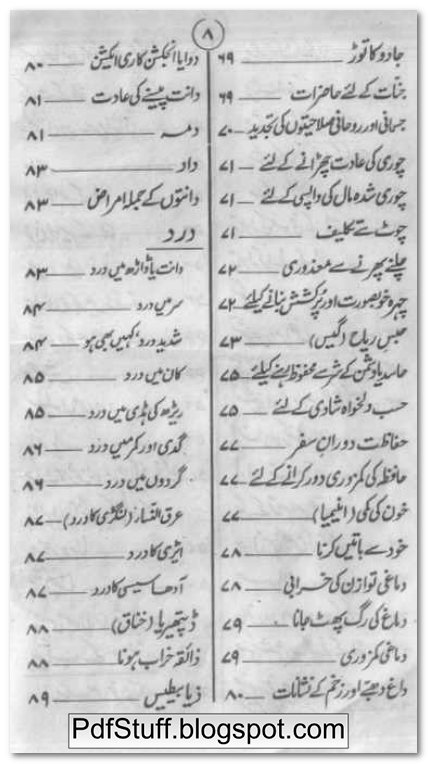 ۸
جادو کا توڑ ۶۹
جنات کے لئے حاضرات ۶۹
جسمانی اور روحانی صلاحیتوں کی تجدید ۷۰
چوری کی عادت چھڑانے کے لئے ۷۱
چوری شدہ مال کی واپسی کے لئے ۷۱
چوٹ سے تکلیف ۷۱
چلنے پھرنے سے معذوری ۷۲
چہرہ خوبصورت اور پُرکشش بنانے کیلئے ۷۲
حبسِ ریاح (گیس) ۷۳
حاسد یا دشمن کے شر سے محفوظ رہنے کیلئے ۷۵
حسب دلخواہ شادی کے لئے ۷۵
حفاظت دورانِ سفر ۷۷
حافظہ کی کمزوری دور کرانے کے لئے ۷۷
خون کی کمی (انیمیا) ۷۷
خود سے باتیں کرنا ۷۸
دماغی توازن کی خرابی ۷۸
دماغ کی رگ پھٹ جانا ۷۹
دماغی کمزوری ۷۹
داغ دھبے اور زخم کے نشانات ۸۰
دوا یا انجکشن کا ری ایکشن ۸۰
دانت پیسنے کی عادت ۸۱
دمہ ۸۱
داد ۸۳
دانتوں کے جملہ امراض ۸۳
درد
دانت یا ڈاڑھ میں درد ۸۳
سر میں درد ۸۴
شدید درد، کہیں بھی ہو ۸۴
کان میں درد ۸۵
ریڑھ کی ہڈی میں درد ۸۵
گدی اور کمر میں درد ۸۶
گردوں میں درد ۸۶
عرق النساء (لنگڑی کا درد) ۸۷
ایڑی کا درد ۸۷
آدھا سیسی کا درد ۸۷
ڈپتھیریا (خناق) ۸۸
ذائقہ خراب ہونا ۸۸
ذیابیطیس ۸۹
PdfStuff.blogspot.com